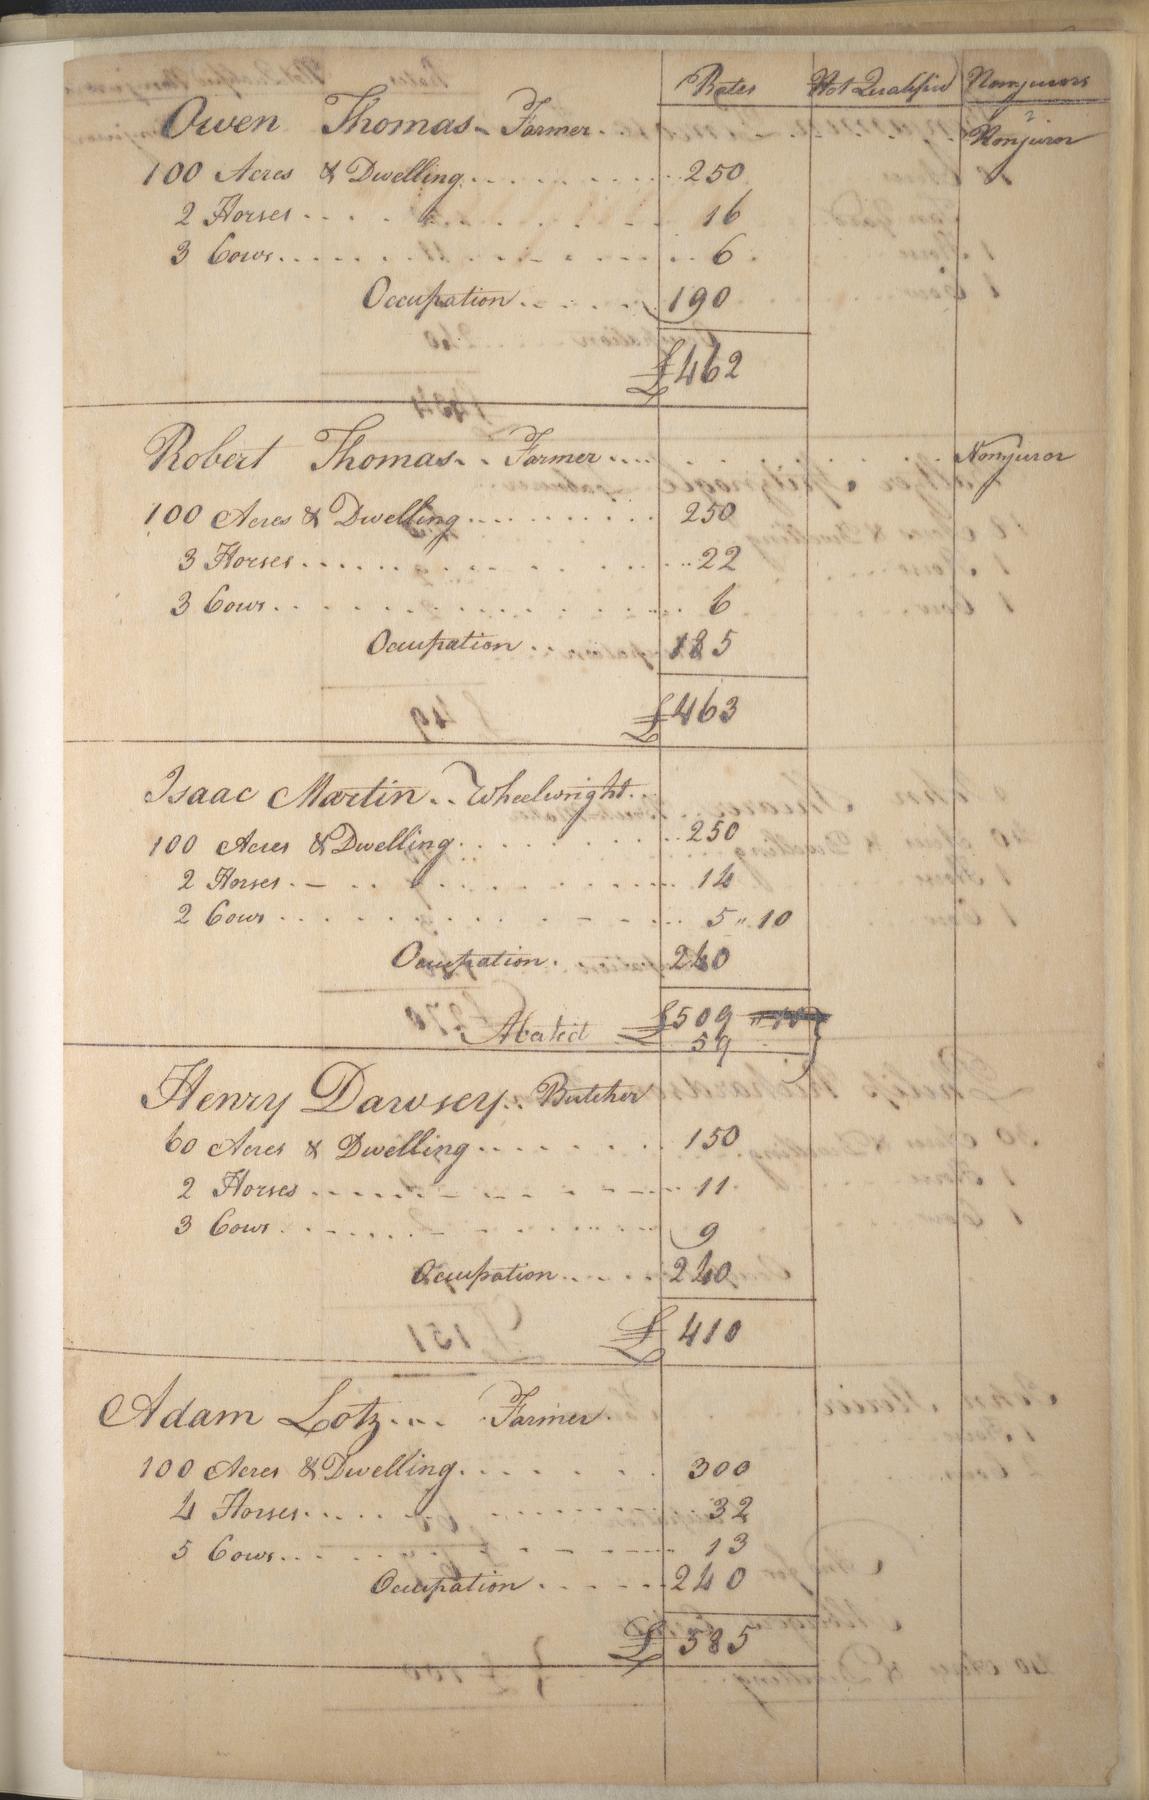 Rates Not Qualified Nonjurors
Owen Thomas - Farmer. Nonjuror
100 Acres & Dwelling 250
2 Horses 16
3 Cows 6
Occupation 190
£462
Robert Thomas - Farmer Nonjuror
100 Acres & Dwelling 250
3 Horses 22
3 Cows 6
Occupation 185
£463
Isaac Martin Wheelwright
100 Acres & Dwelling 250
2 Horses 14
2 Cows 5 " 10
Occupation 240
£509
Abated 59
Henry Dawsey Butcher
60 Acres & Dwelling 150
2 Horses 11
3 Cows 9
Occupation 240
£ 410
Adam Lotz Farmer
100 Acres & Dwelling 300
4 Horses 32
5 Cows 13
Occupation 240
£ 585